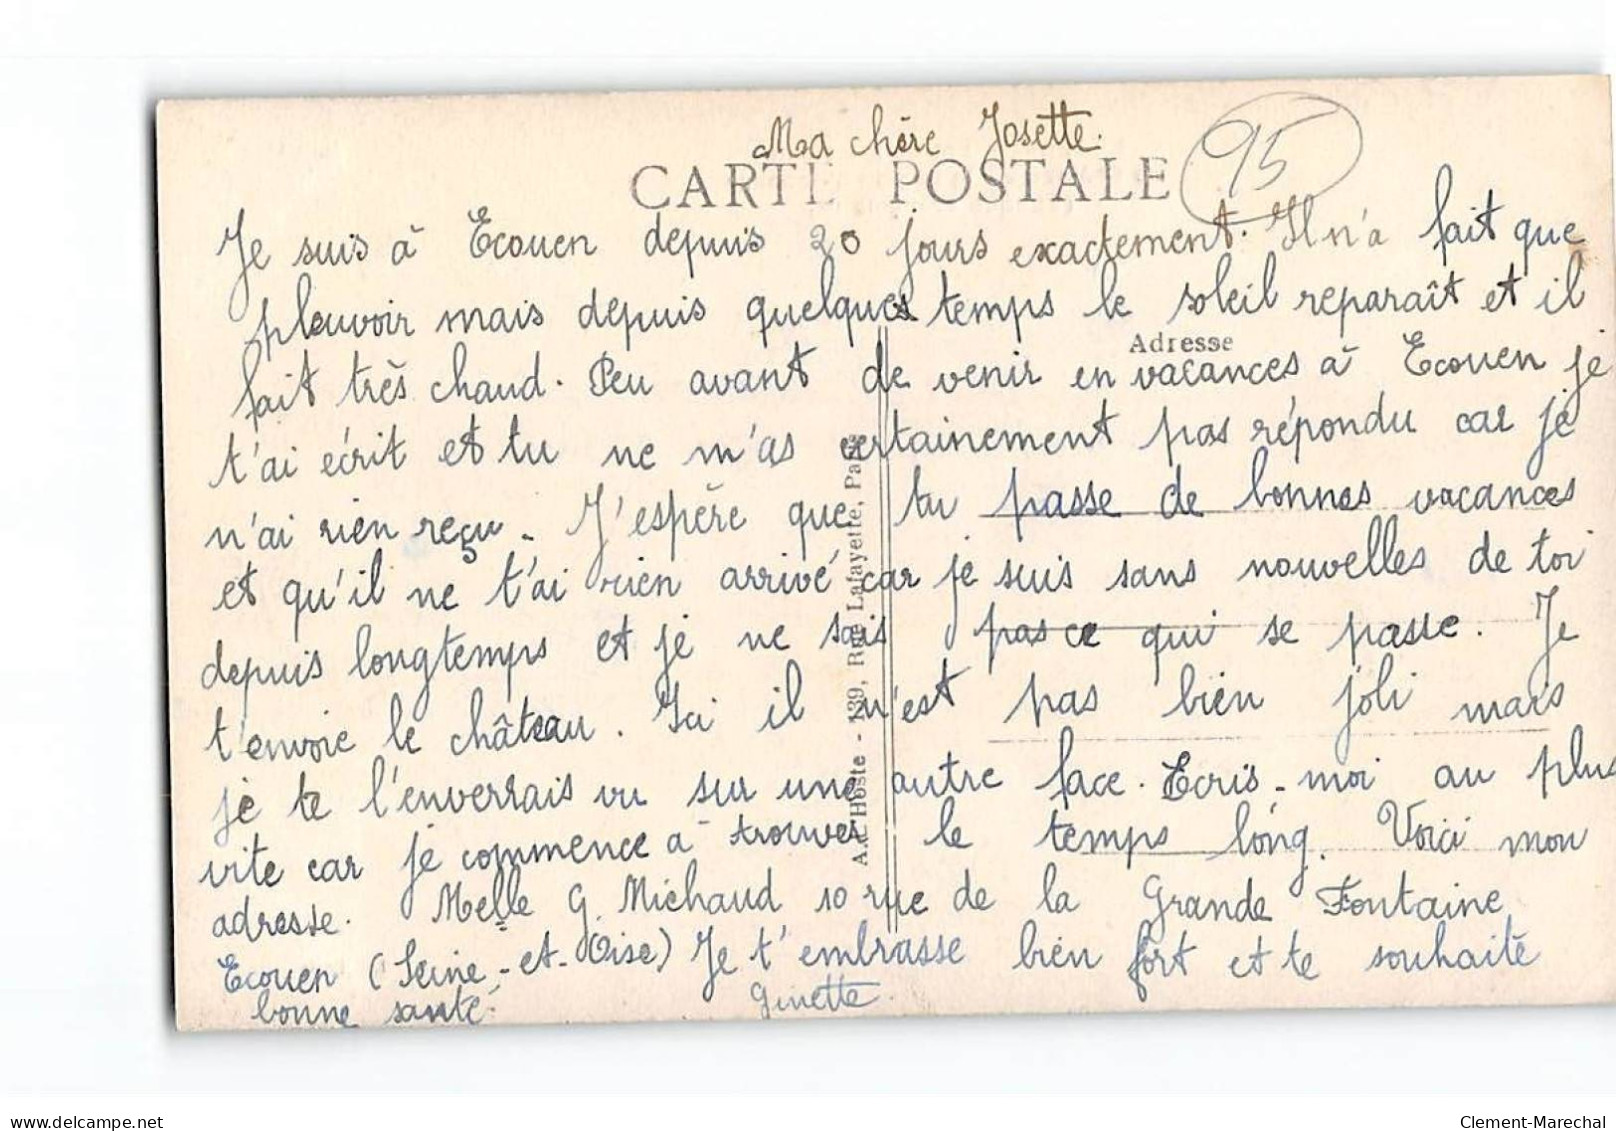 Ma chère Josette.
95
CARTE POSTALE
Je suis à Ecouen depuis 20 jours exactement. Il n'a fait que
pleuvoir mais depuis quelques temps le soleil reparaît et il
Adresse
fait très chaud. Peu avant de venir en vacances à Ecouen je
t'ai écrit et tu ne m'as certainement pas répondu car je
n'ai rien reçu. J'espère que tu passe de bonnes vacances
et qu'il ne t'ai rien arrivé car je suis sans nouvelles de toi
depuis longtemps et je ne sais pas ce qui se passe. Je
t'envoie le château. Ici il n'est pas bien joli mais
je te l'enverrais vu sur une autre face. Ecris-moi au plus
vite car je commence à trouver le temps long. Voici mon
adresse. Melle G. Michaud 10 rue de la Grande Fontaine
Ecouen (Seine-et-Oise) Je t'embrasse bien fort et te souhaite
bonne santé. Ginette
A. L'Hoste - 139, Rue Lafayette, Paris
delcampe.net
Clement-Marechal